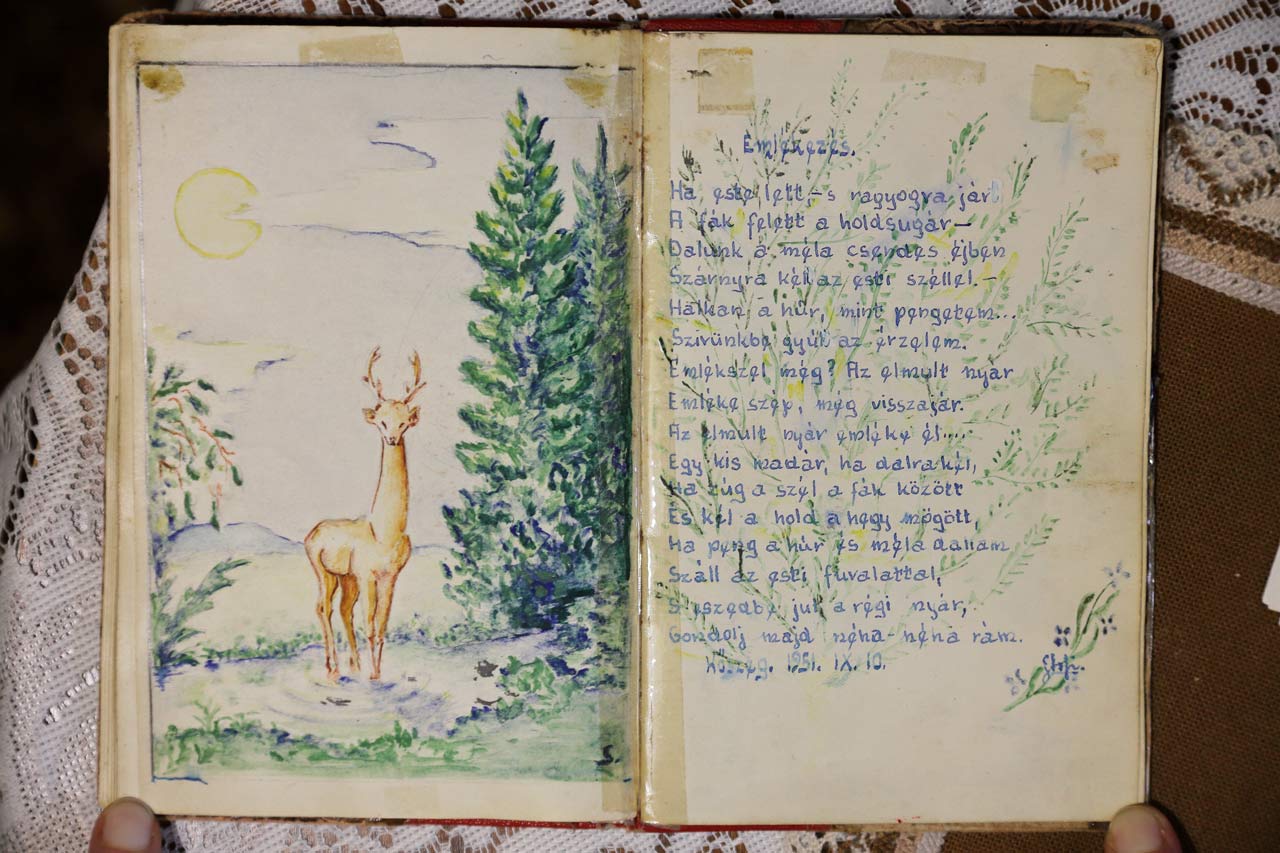 S.
Emlékezés.
Ha este lett,-s ragyogra jár
A fák felett a holdsugár—
Dalunk a méla csendes éjben
Szárnyra kél az esti széllel.—
Halkan a húr, mint pengetem...
Szívünkbe gyúl az érzelem.
Emlékszel még? Az elmult nyár
Emléke szép, még visszajár.
Az elmult nyár emléke él....
Egy kis madár, ha dalra kél,
Ha zúg a szél a fák között
És kél a hold a hegy mögött,
Ha peng a húr és méla dallam
Száll az esti fuvalattal,
S eszedbe jut a régi nyár,
Gondolj majd néha-néha rám.
Kőszeg. 1951. IX. 10.